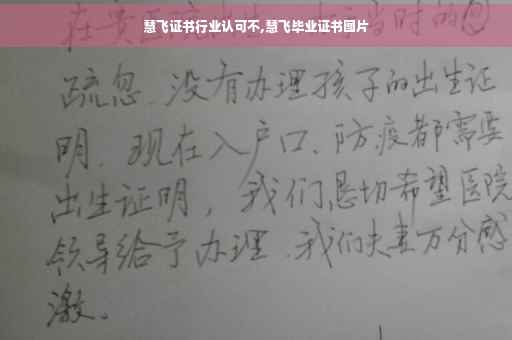 慧飞证书行业认可不,慧飞毕业证书图片
当时的
疏忽、没有办理孩子的出生证
明、现在入户口、防疫都需要
出生证明，我们恳切希望医院
领导给予办理、我们夫妻万分感
激。